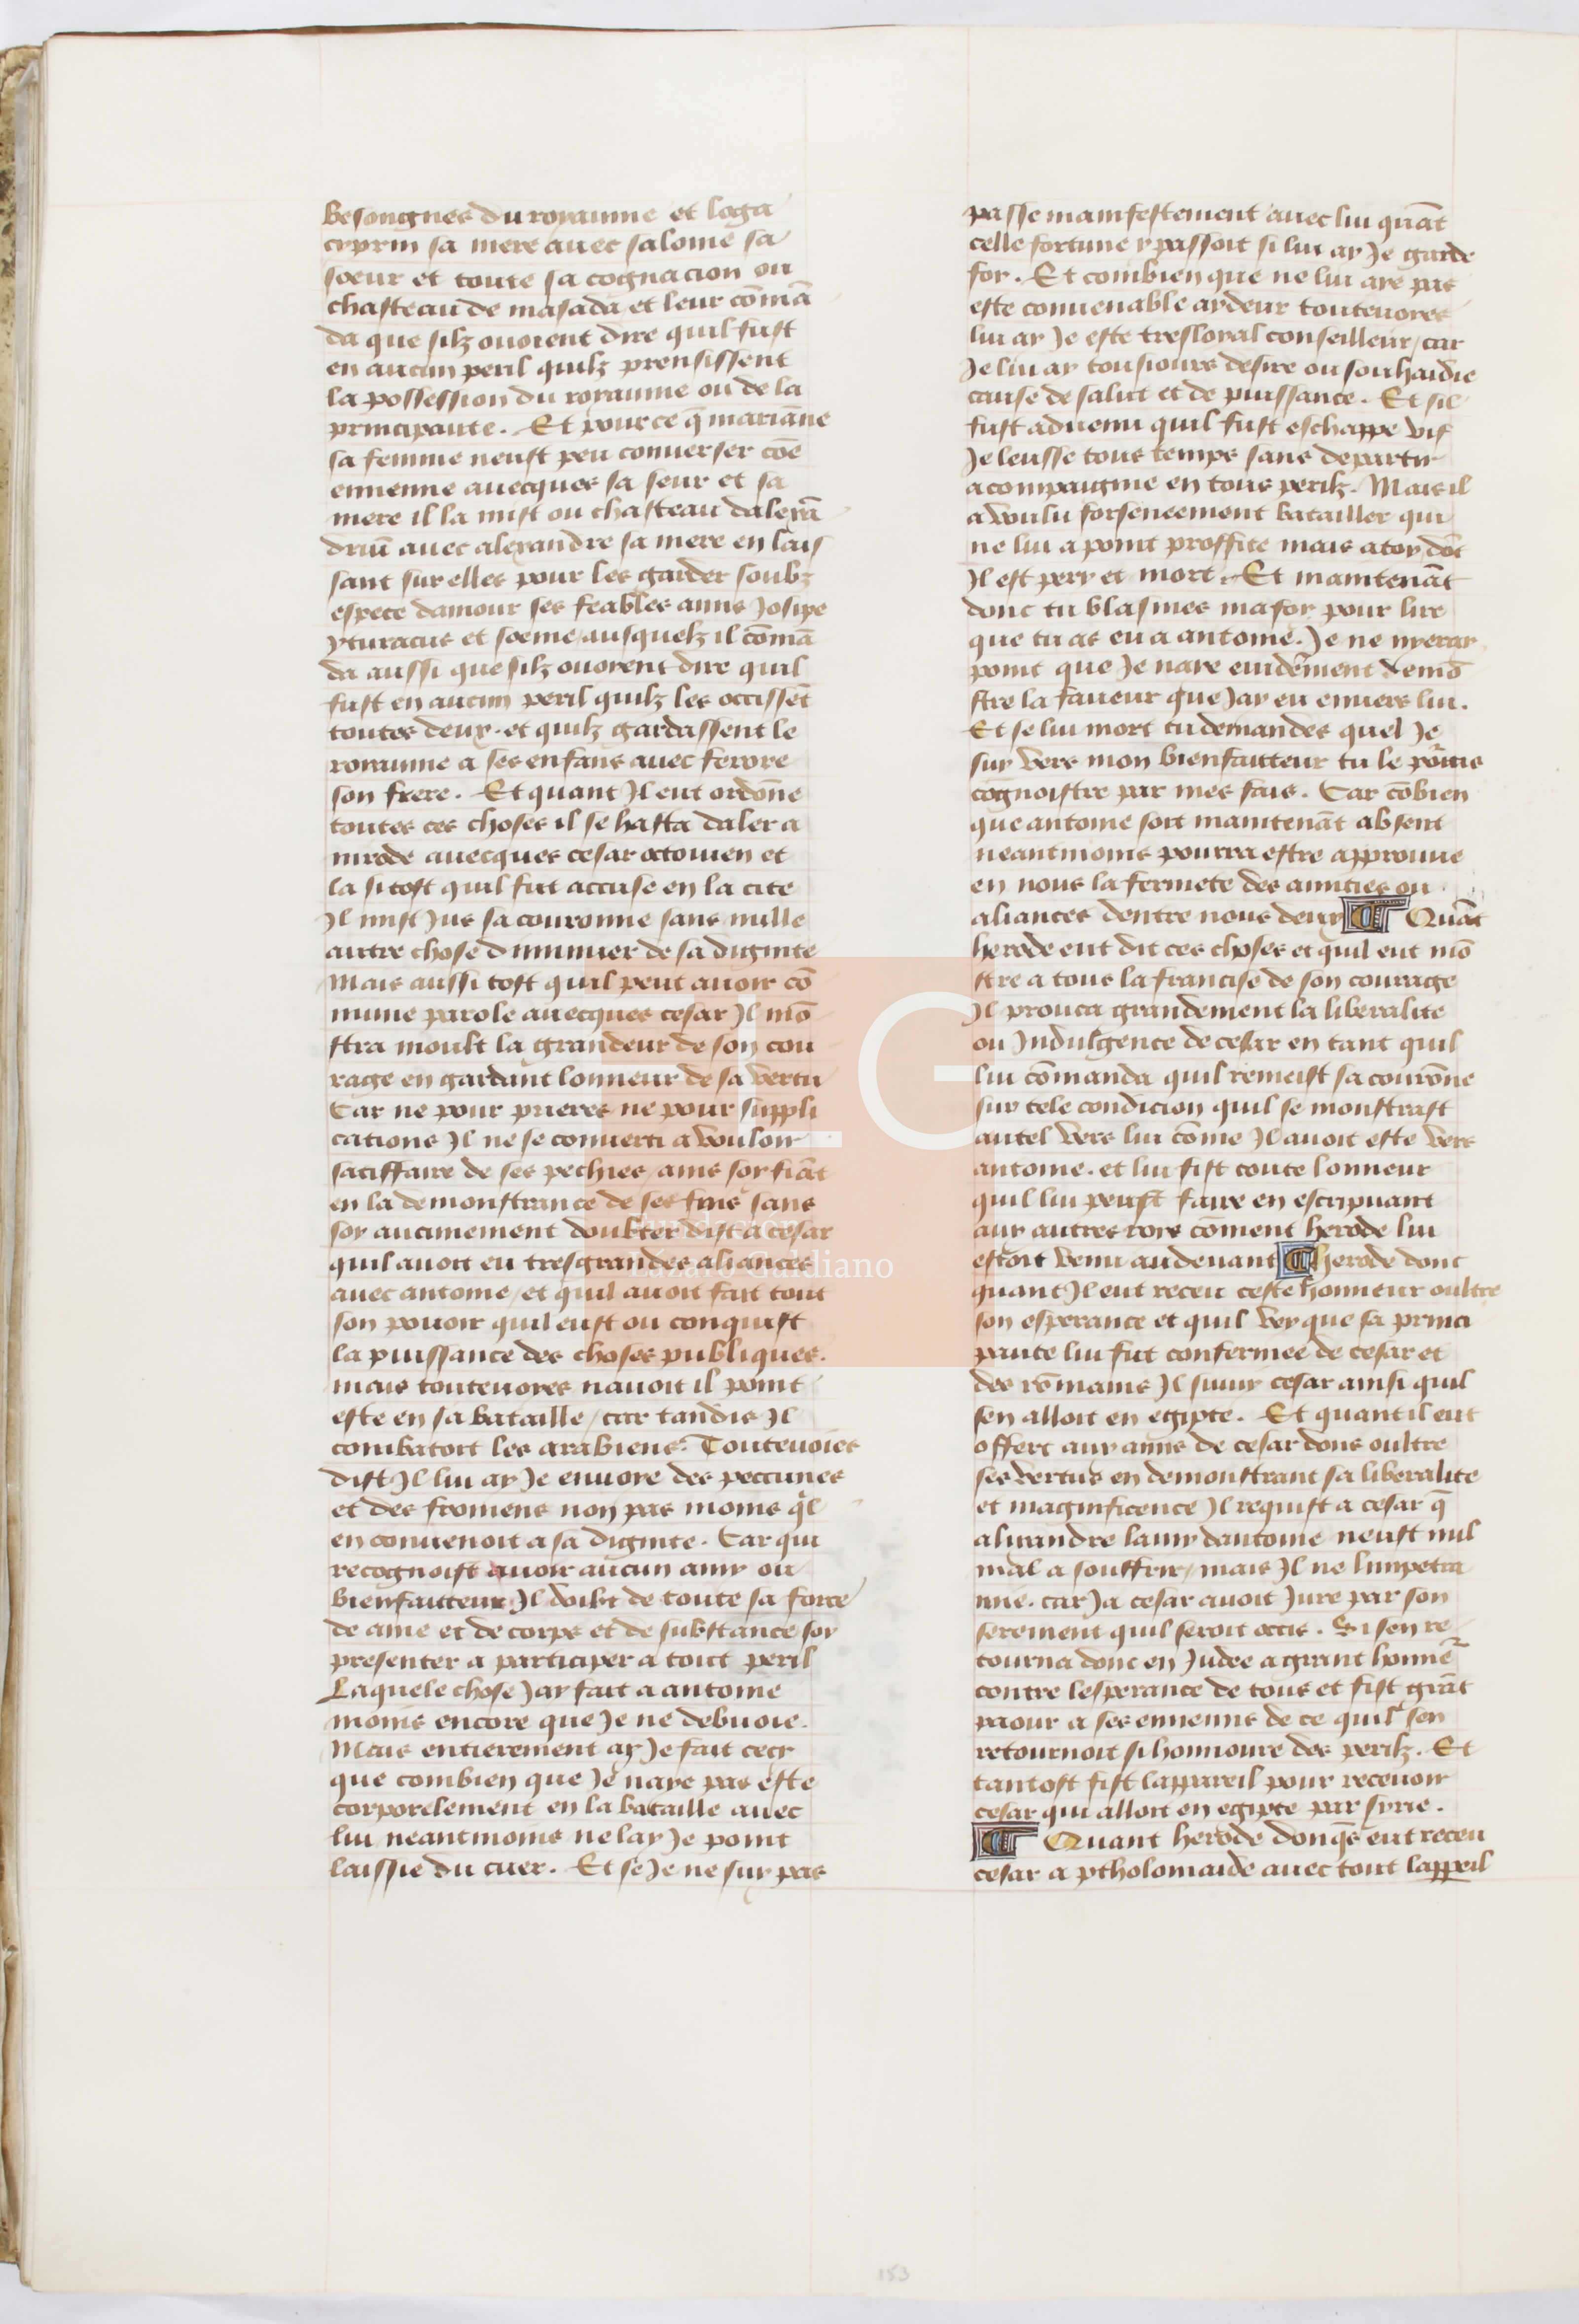 besongnes du royaume et loga
cyprin sa mere auec salome sa
soeur et toute sa cognacion ou
chasteau de masada et leur cōmā
da que silz ouoient dire quil fust
en aucun peril quilz prensissent
la possession du royaume ou de la
principaute. Et pour ce q̄ mariāne
sa femme neust peu conuerser cōe
ennemie auecques sa seur et sa
mere il la mist ou chasteau dalexā
driū auec alexandre sa mere en lais
sant sur elles pour les garder soubz
espece damour ses feables amis Josipe
yturacus et soeme ausquelz il cōmā
da aussi que silz ouoient dire quil
fust en aucun peril quilz les occissēt
toutes deux. et quilz gardassent le
royaume a ses enfans auec ferore
son frere. Et quant Jl eut ordōne
toutes ces choses il se hasta daler a
nirode auecques cesar octouien et
la si tost quil fut accuse en la cite
Jl mist Jus sa couronne sans nulle
autre chose diminuer de sa dignite
Mais aussi tost quil peut auoir cō
mune parole auecques cesar Jl mō
stra moult la grandeur de son cou
rage en gardant lonneur de sa vertu
Car ne pour prieres ne pour suppli
cations Jl ne se conuerti a vouloir
satiffaire de ses pechies / ains soy fiāt
en la demonstrance de ses fais sans
soy aucunement doubter dist a cesar
quil auoit eu tresgrandes aliances
auec antoine / et quil auoit fait tout
son pouoir quil eust ou conquist
la puissance des choses publiques.
mais touteuoies nauoit il point
este en sa bataille / car tandis Jl
combatoit les arabiens. Touteuoies
dist Jl lui ay Je enuoye des peccunes
et des fromens non pas moins ql
en conuenoit a sa dignite. Car qui
recognoist auoir aucun amy ou
bienfaitteur Jl doibt de toute sa force
de ame et de corps et de substance soy
presenter a participer a tout peril
Laquele chose Jay fait a antoine
moins encore que Je ne debuoie.
Mais entierement ay Je fait cecy
que combien que Je naye pas este
corporelement en la bataille auec
lui neantmoins ne lay Je point
laissie du cuer. Et se Je ne suy pas
passe manifestement auec lui quāt
celle fortune y passoit si lui ay Je garde
foy. Et combien que ne lui aye pas
este conuenable aydeur touteuoies
lui ay Je este tresloyal conseilleur / car
Je lui ay tousiours desire ou souhaidie
cause de salut et de puissance. Et sil
fust aduenu quil fust eschappe vif
Je leusse tous temps sans departir
acompaignie en tous perilz. Mais il
a voulu forseneement batailler qui
ne lui a point proffite mais a toy dōt
Jl est pery et mort. Et maintenāt
donc tu blasmes ma foy pour lire
que tu as eu a antoine. Je ne nyeray
point que Je naye euidēment demō
stre la faueur que Jay eu enuers lui.
Et se lui mort tu demandes quel Je
suy vers mon bienfaitteur tu le porras
cognoistre par mes fais. Car cōbien
que antoine soit maintenāt absent
neantmoins pourra estre approuue
en nous la fermete des amities ou
aliances dentre nous deux ¶ Quāt
herode eut dit ces choses et quil eut mō
stre a tous la francise de son courage
Jl prouoca grandement la liberalite
ou Jndulgence de cesar en tant quil
lui cōmanda quil remeist sa courōne
sur tele condicion quil se monstrast
autel vers lui cōme Jl auoit este vers
antoine. et lui fist toute lonneur
quil lui peust faire en escripuant
aux autres roys cōment herode lui
estoit venu au deuant ¶ herode donc
quant Jl eut receu ceste honneur oultre
son esperance et quil vey que sa princi
paute lui fut confermee de cesar et
des rōmains Jl suiuy cesar ainsi quil
sen alloit en egipte. Et quant il eut
offert aux amis de cesar dons oultre
ses vertus en demonstrant sa liberalite
et magnificence Jl requist a cesar q̄
alixandre lamy dantoine neust nul
mal a souffrir / mais Jl ne limpetra
mie. car Ja cesar auoit Jure par son
serement quil seroit occis. Si sen re
tourna donc en Judee a grant honnēr
contre lesperance de tous et fist grāt
paour a ses ennemis de ce quil sen
retournoit si honnoure des perilz. Et
tantost fist lappareil pour receuoir
cesar qui alloit en egipte par syrie.
¶ Quant herode donq̄s eut receu
cesar a ptholomaide auec tout lappeil
153
LG
Fundación
Lázaro Galdiano